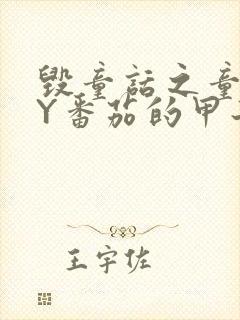 毁童话之童
Y番茄的甲
王宇佐